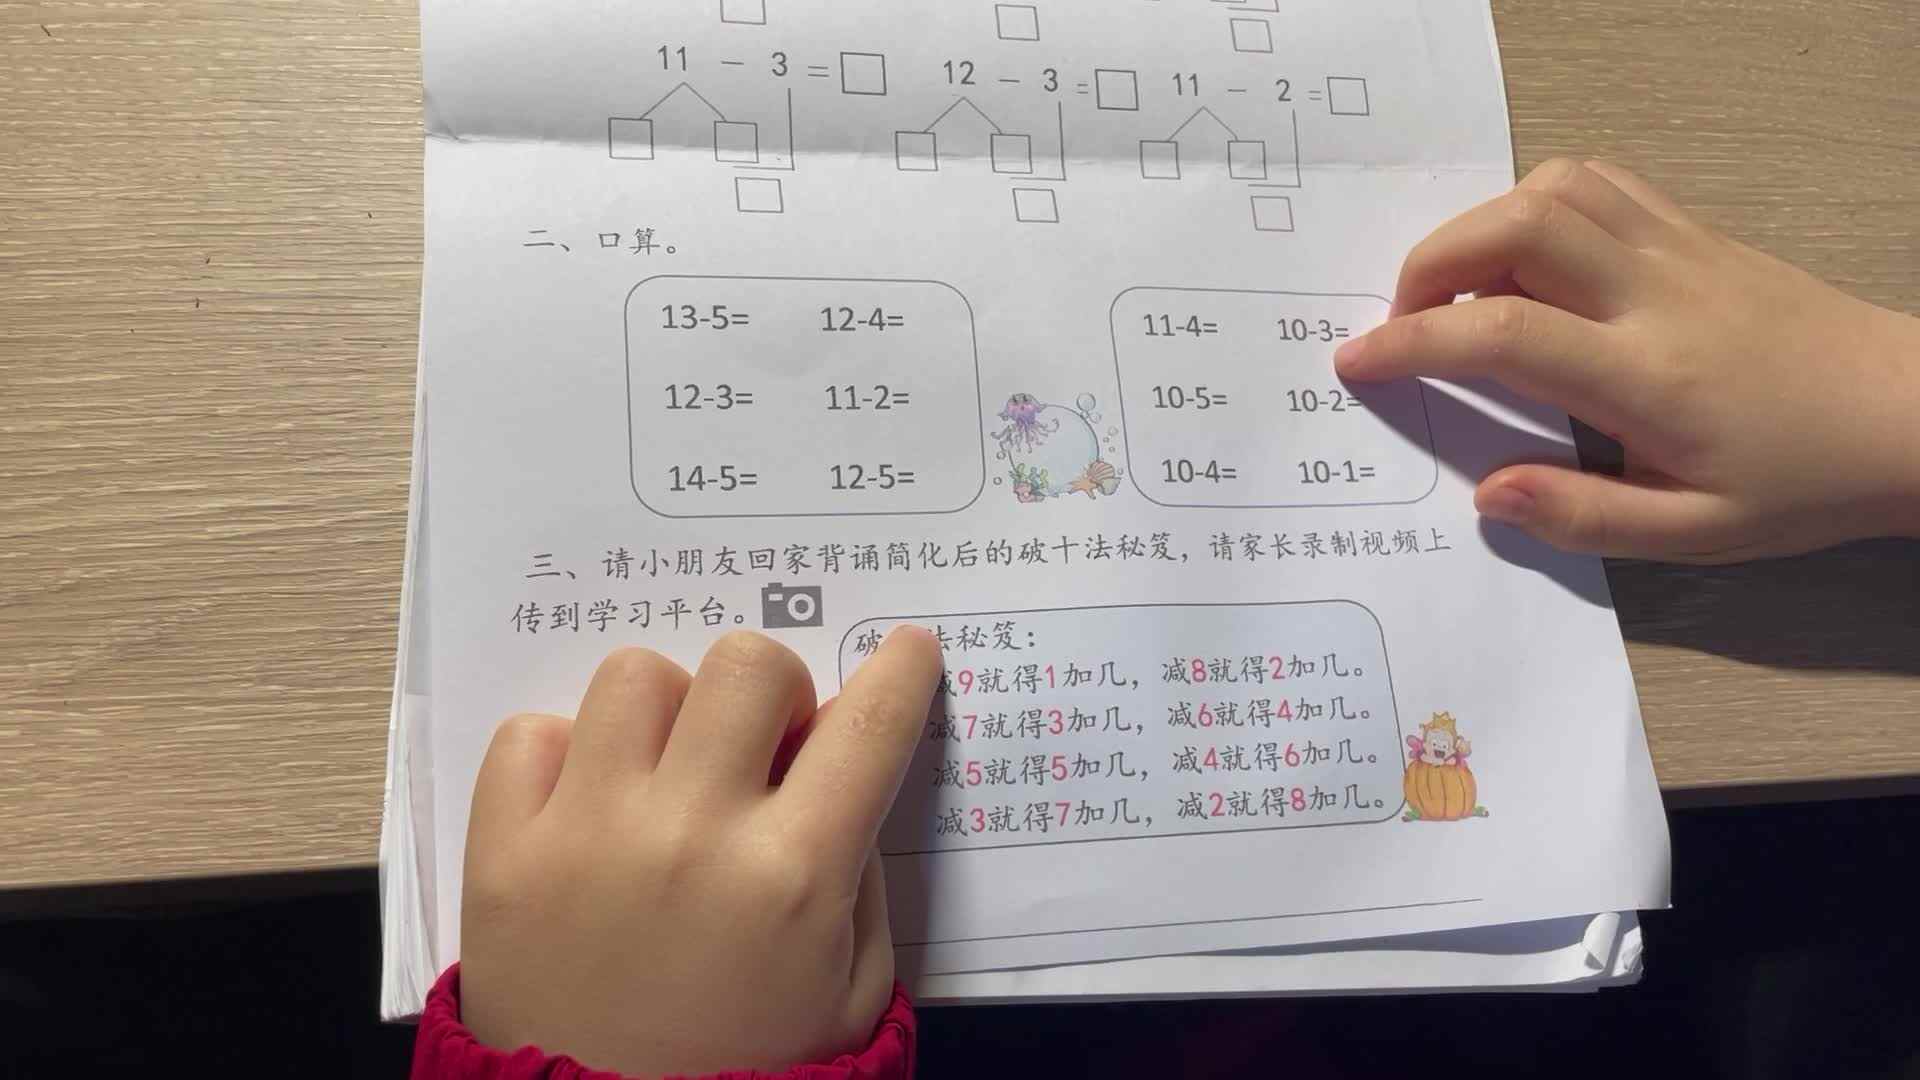 11 − 3 = □ 12 − 3 = □ 11 − 2 = □
二、口算。
13-5= 12-4= 11-4= 10-3=
12-3= 11-2= 10-5= 10-2=
14-5= 12-5= 10-4= 10-1=
三、请小朋友回家背诵简化后的破十法秘笈，请家长录制视频上
传到学习平台。
破 法秘笈：
减9就得1加几，减8就得2加几。
减7就得3加几，减6就得4加几。
减5就得5加几，减4就得6加几。
减3就得7加几，减2就得8加几。